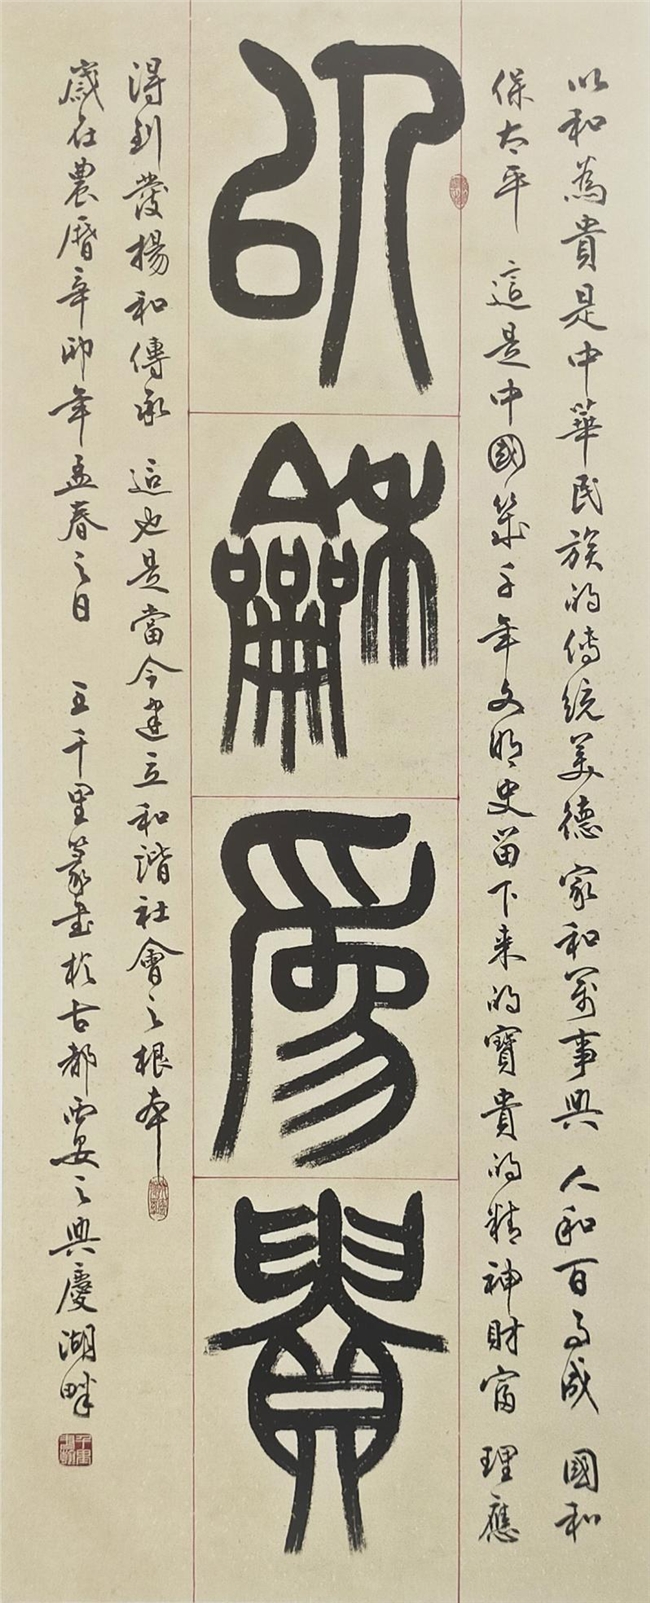 以和為貴是中華民族的傳統美德 家和萬事興 人和百事成 國和
保太平 這是中國幾千年文明史留下来的寶貴的精神財富 理應
以龢為貴
得到發揚和傳承 這也是當今建立和諧社會之根本
歲在農曆辛卯年孟春之日 王千里篆書於古都西安之興慶湖畔